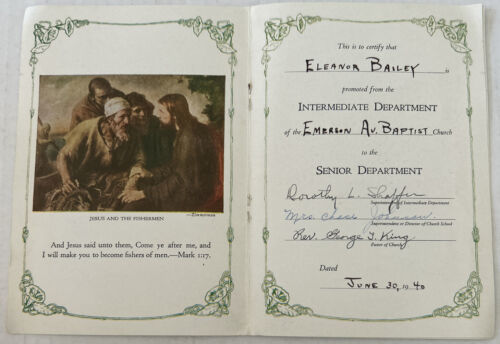 —Zimmerman
JESUS AND THE FISHERMEN
And Jesus said unto them, Come ye after me, and
I will make you to become fishers of men.—Mark 1:17.
This is to certify that
ELEANOR BAILEY is
promoted from the
INTERMEDIATE DEPARTMENT
of the EMERSON AV. BAPTIST Church
to the
SENIOR DEPARTMENT
Dorothy L. Shaffer
Superintendent of Intermediate Department
Mrs. Johnson
Superintendent or Director of Church School
Rev. George T. King
Pastor of Church
Dated
JUNE 30, 1940